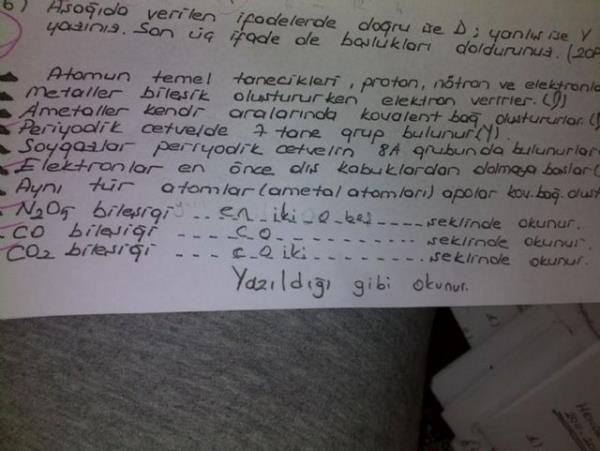 b) Aşağıda verilen ifadelerde doğru ise D; yanlış ise Y
yazınız. Son üç ifade de boşlukları doldurunuz. (20P
Atomun temel tanecikleri, proton, nötron ve elektronla
Metaller bileşik oluştururken elektron verirler. (D)
Ametaller kendi aralarında kovalent bağ oluştururlar. (
Periyodik cetvelde 7 tane grup bulunur (Y).
Soygazlar periyodik cetvelin 8A grubunda bulunurlar
Elektronlar en önce dış kabuklardan dolmaya başlar (
Aynı tür atomlar (ametal atomları) apolar kov. bağ oluşt
N2O5 bileşiği ... en iki o beş ...... şeklinde okunur.
CO bileşiği .... c o .......... şeklinde okunur.
CO2 bileşiği .... c o iki ........ şeklinde okunur.
Yazıldığı gibi okunur.